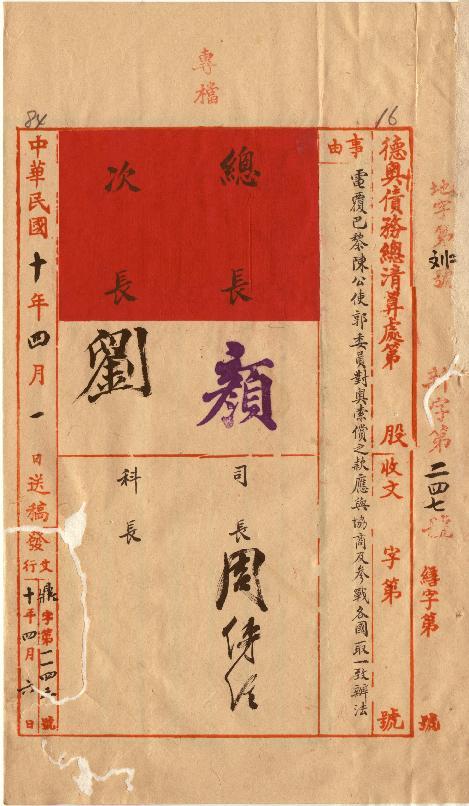 專檔
16
84
地字第
號
封字第二四七號
繕字第
號
德奧債務總清算處第
股收文
字第
號
事由
電覆巴黎陳公使郭委員對奧索償之款應與協商及參戰各國取一致辦法
總長
顏
司長
周傳經
次長
劉
科長
中華民國十年四月一日送稿發
文行
字第二四
號
十年四月六日